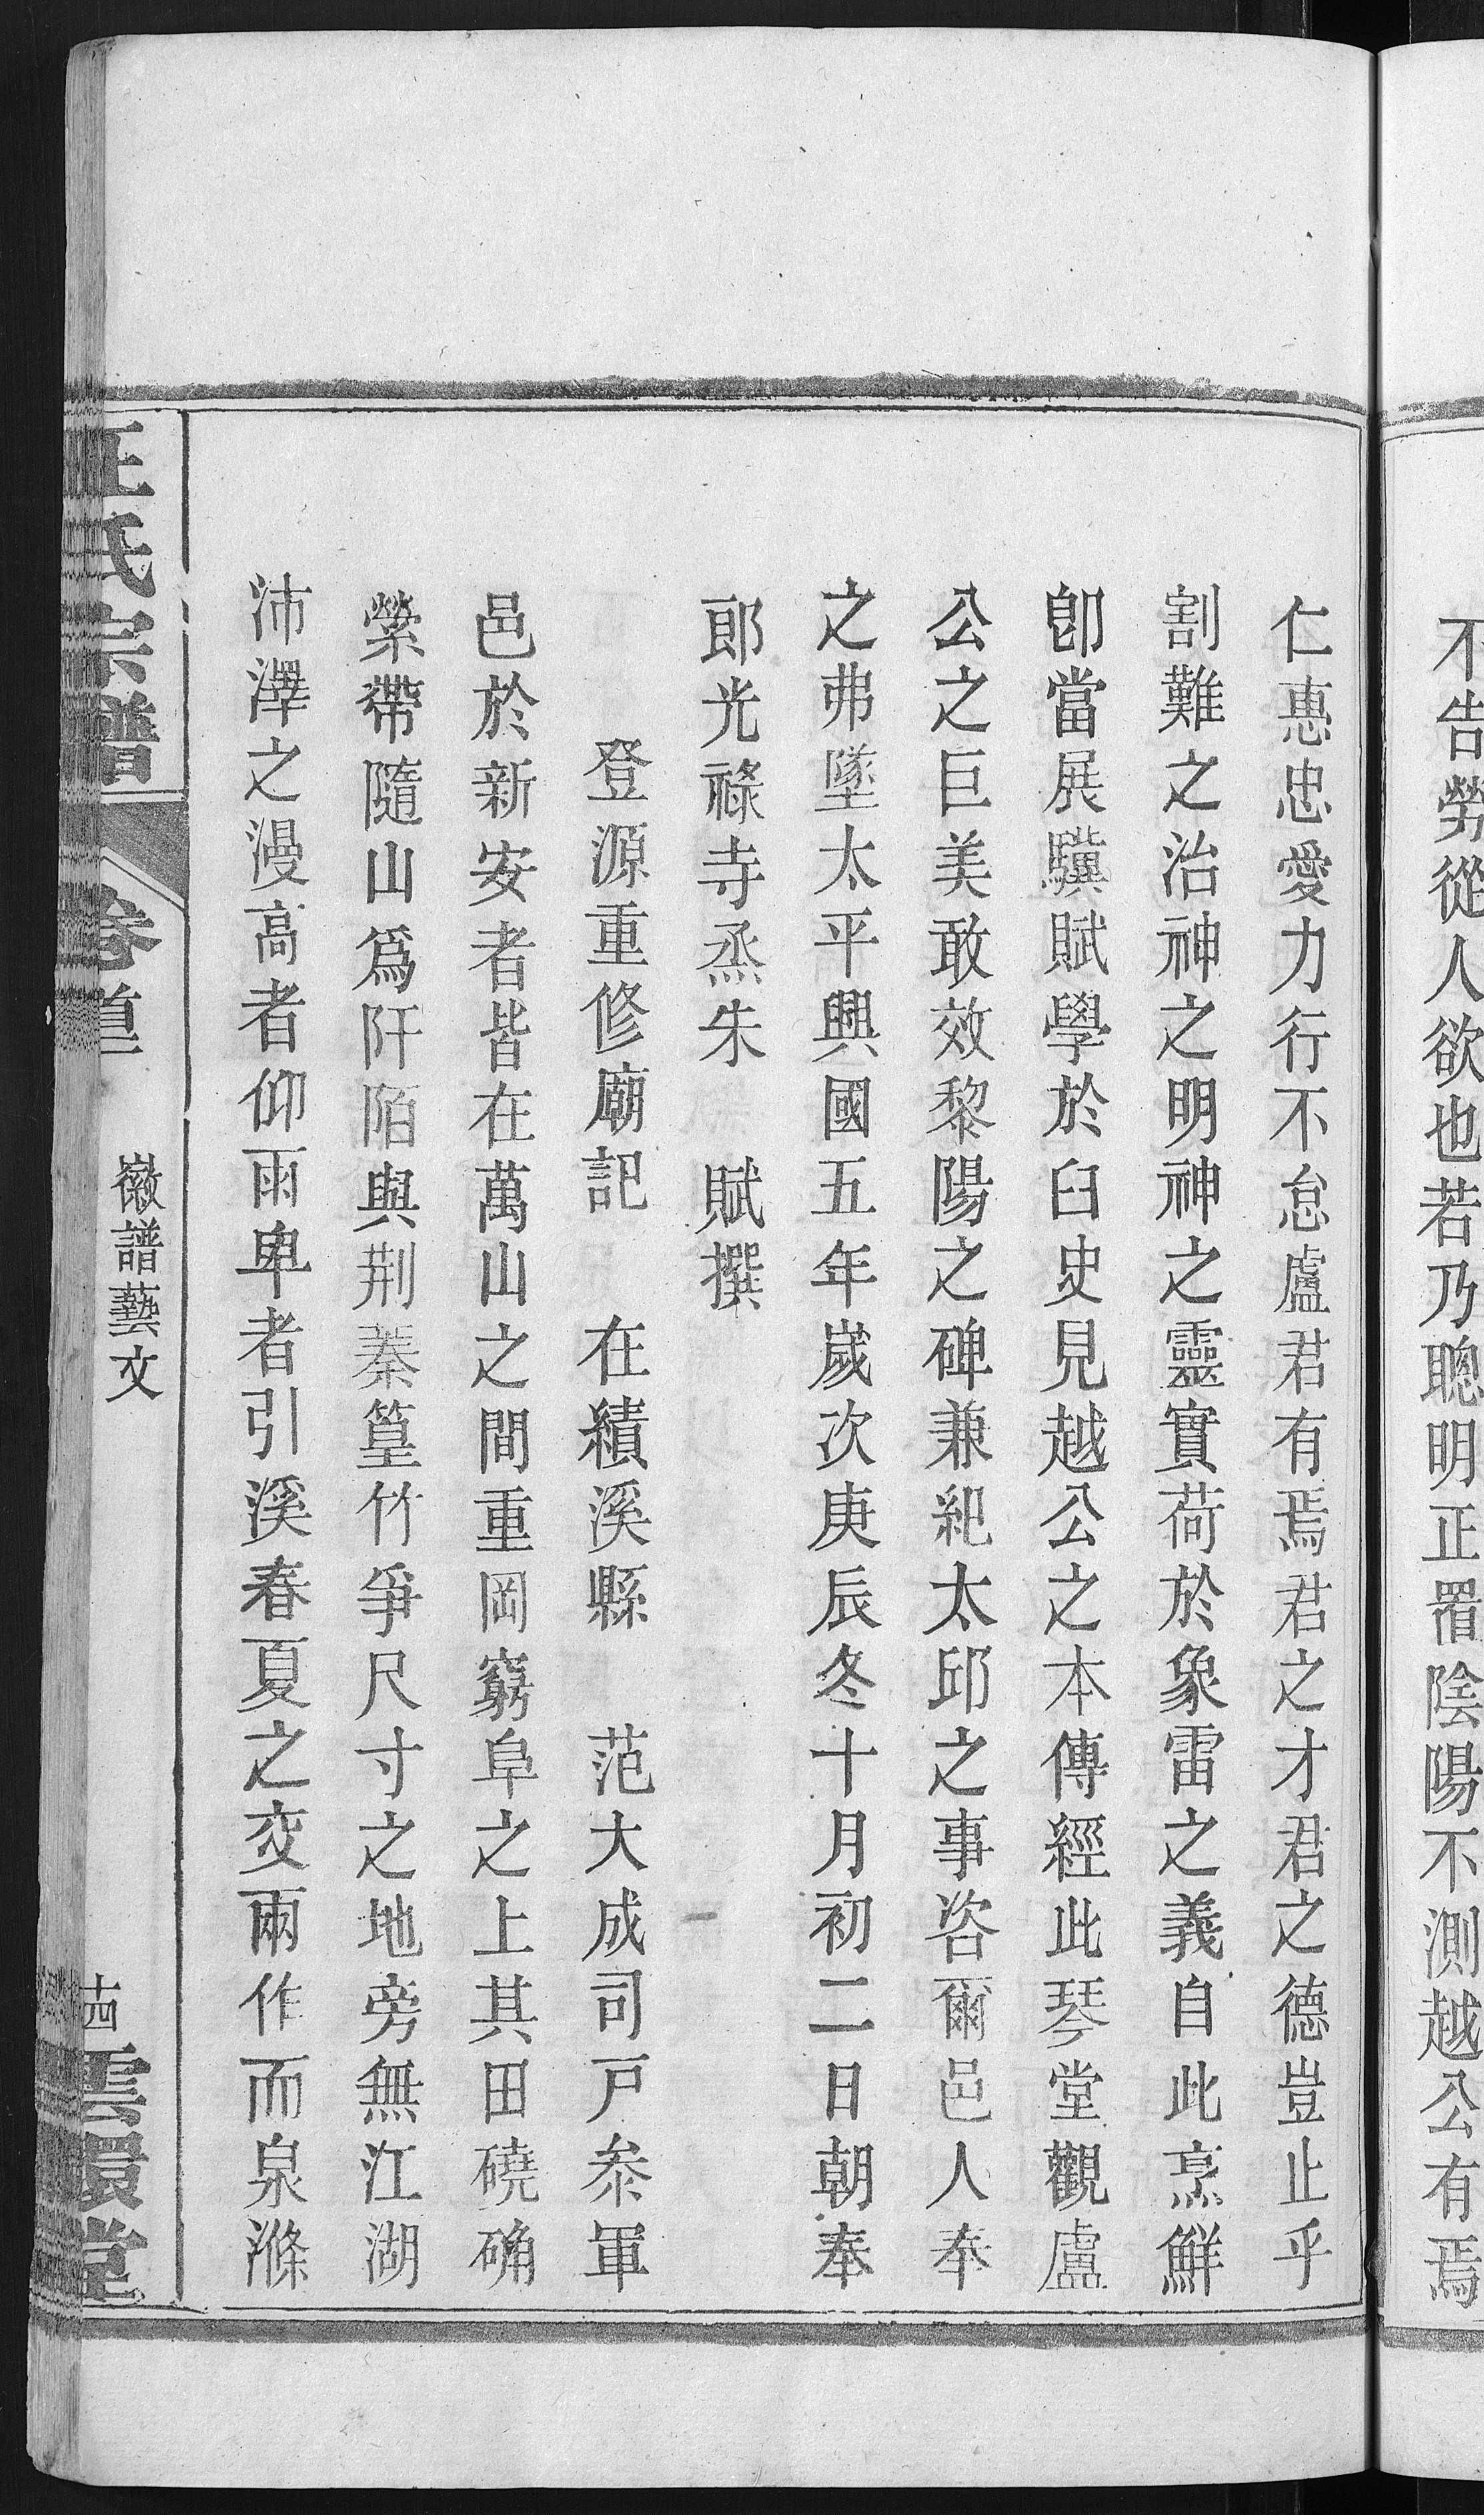 不告勞從人欲也若乃聰明正罯陰陽不測越公有焉
仁惠忠愛力行不怠盧君有焉君之才君之德豈止乎
割難之治神之明神之靈實荷於象雷之義自此烹鮮
卽當展驥賦學於臼史見越公之本傳經此琴堂觀盧
公之巨美敢效黎陽之碑兼紀太邱之事咨爾邑人奉
之弗墜太平興國五年嵗次庚辰冬十月初二日朝奉
郎光祿寺烝朱　賦撰
登源重修廟記　在績溪縣　范大成司戸叅軍
邑於新安者皆在萬山之間重岡窮阜之上其田磽确
縈帶隨山爲阡陌與荆蓁篁竹爭尺寸之地旁無江湖
沛澤之漫高者仰雨卑者引溪春夏之交雨作而泉滌
汪氏宗譜　卷首　徽譜藝文　十四　雲環堂